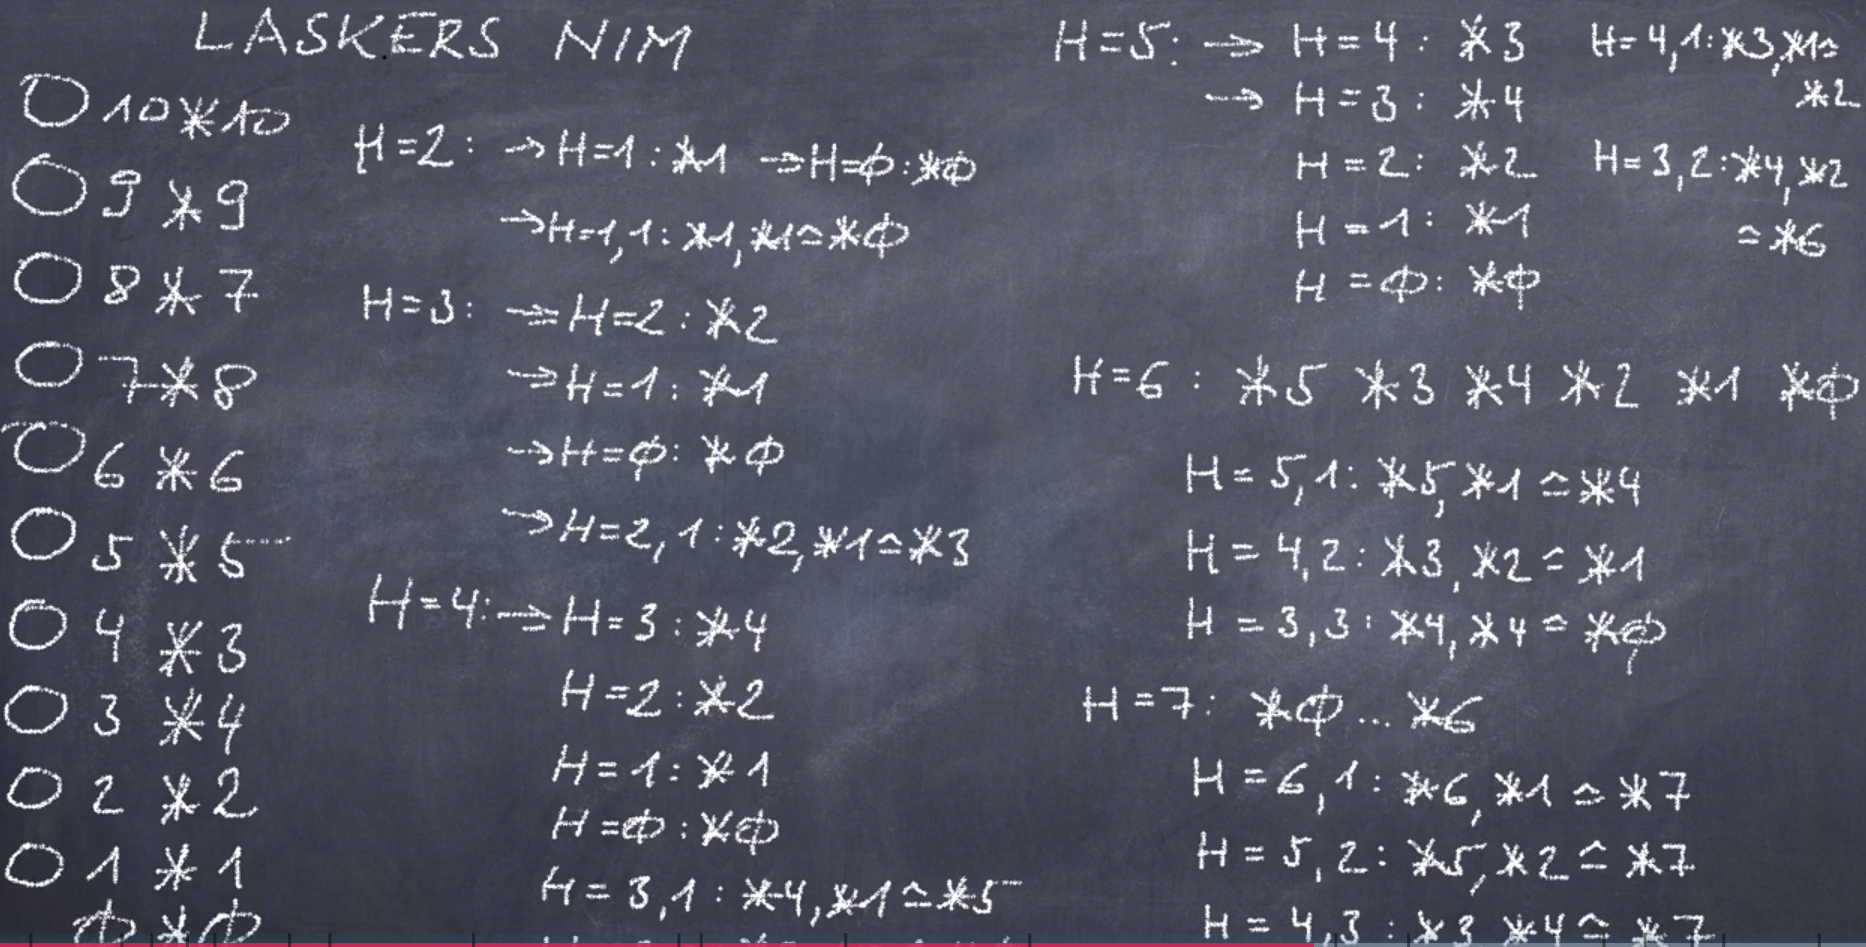 LASKERS NIM
10 *10
9 *9
8 *7
7 *8
6 *6
5 *5
4 *3
3 *4
2 *2
1 *1
ϕ *ϕ
H=2: → H=1: *1 → H=ϕ: *ϕ
→ H=1,1: *1, *1 ≙ *ϕ
H=3: → H=2: *2
→ H=1: *1
→ H=ϕ: *ϕ
→ H=2,1: *2, *1 ≙ *3
H=4: → H=3: *4
H=2: *2
H=1: *1
H=ϕ: *ϕ
H=3,1: *4, *1 ≙ *5
H=5: → H=4: *3
→ H=3: *4
H=2: *2
H=1: *1
H=ϕ: *ϕ
H=4,1: *3, *1 ≙
*2
H=3,2: *4, *2
≙ *6
H=6: *5 *3 *4 *2 *1 *ϕ
H=5,1: *5, *1 ≙ *4
H=4,2: *3, *2 ≙ *1
H=3,3: *4, *4 ≙ *ϕ
H=7: *ϕ... *6
H=6,1: *6, *1 ≙ *7
H=5,2: *5, *2 ≙ *7
H=4,3: *3 *4 ≙ *7